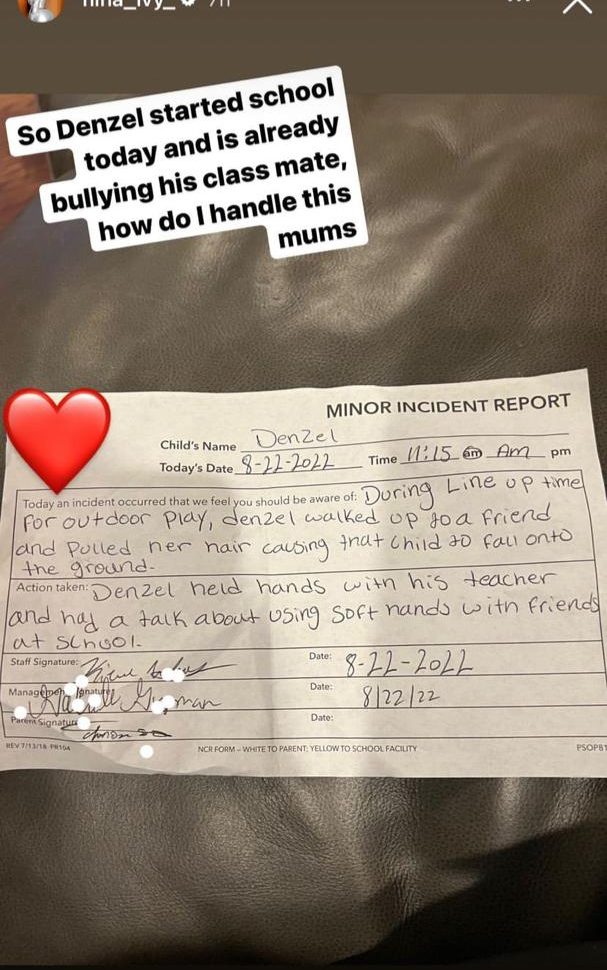 nina_ivy_ 7h
So Denzel started school
today and is already
bullying his class mate,
how do I handle this
mums
MINOR INCIDENT REPORT
Child's Name Denzel
Today's Date 8-22-2022 Time 11:15 am Am pm
Today an incident occurred that we feel you should be aware of: During Line up time
For outdoor Play, denzel walked up to a friend
and Pulled her hair causing that child to fall onto
the ground.
Action taken: Denzel held hands with his teacher
and had a talk about using soft hands with friends
at school.
Staff Signature: Date: 8-22-2022
Management Signature: Date: 8/22/22
Parent Signature Date:
REV 7/13/18 PB104 NCR FORM – WHITE TO PARENT; YELLOW TO SCHOOL FACILITY PSOP81